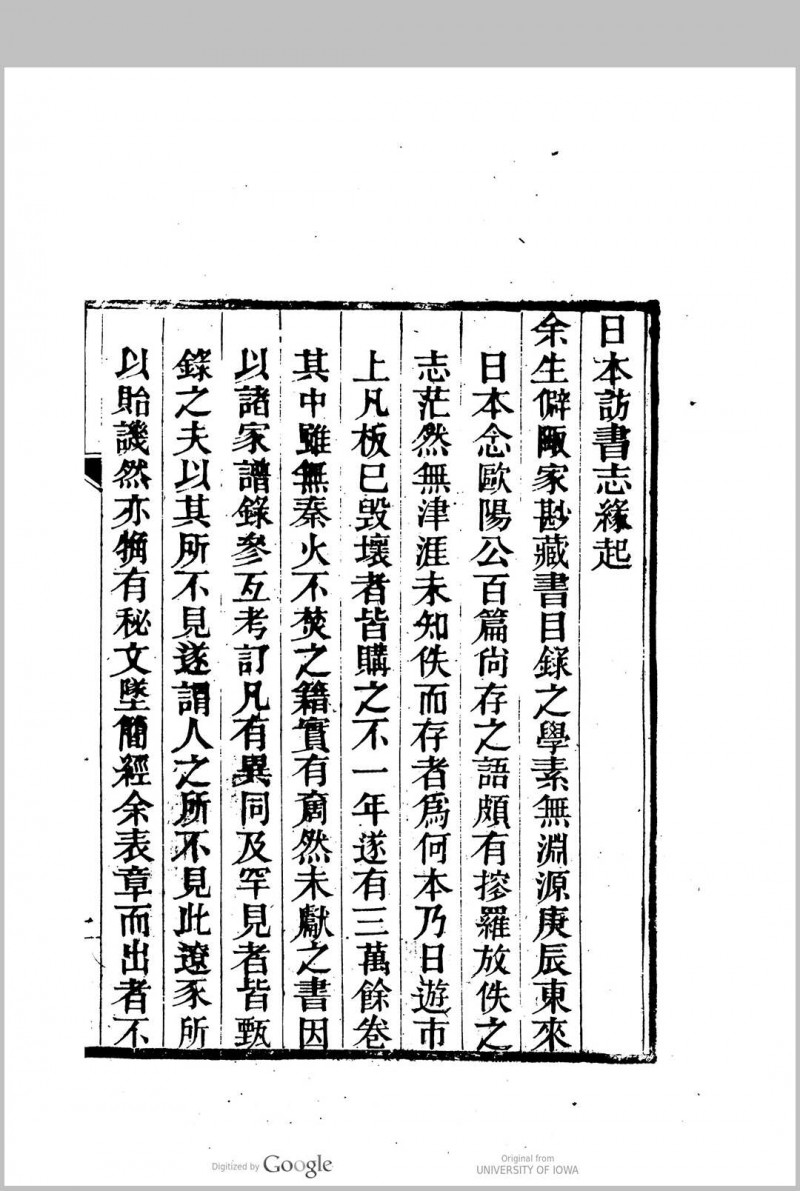 日本訪書志緣起
余生僻陬家尠藏書目錄之學素無淵源庚辰東來
日本念歐陽公百篇尙存之語頗有搜羅放佚之
志茫然無津涯未知佚而存者爲何本乃日遊市
上凡板已毀壞者皆購之不一年遂有三萬餘卷
其中雖無秦火不焚之籍實有奝然未獻之書因
以諸家譜錄參互考訂凡有異同及罕見者皆甄
錄之夫以其所不見遂謂人之所不見此遼豕所
以貽譏然亦犕有秘文墜簡經余表章而出者不
Digitized by Google
Original from
UNIVERSITY OF IOWA